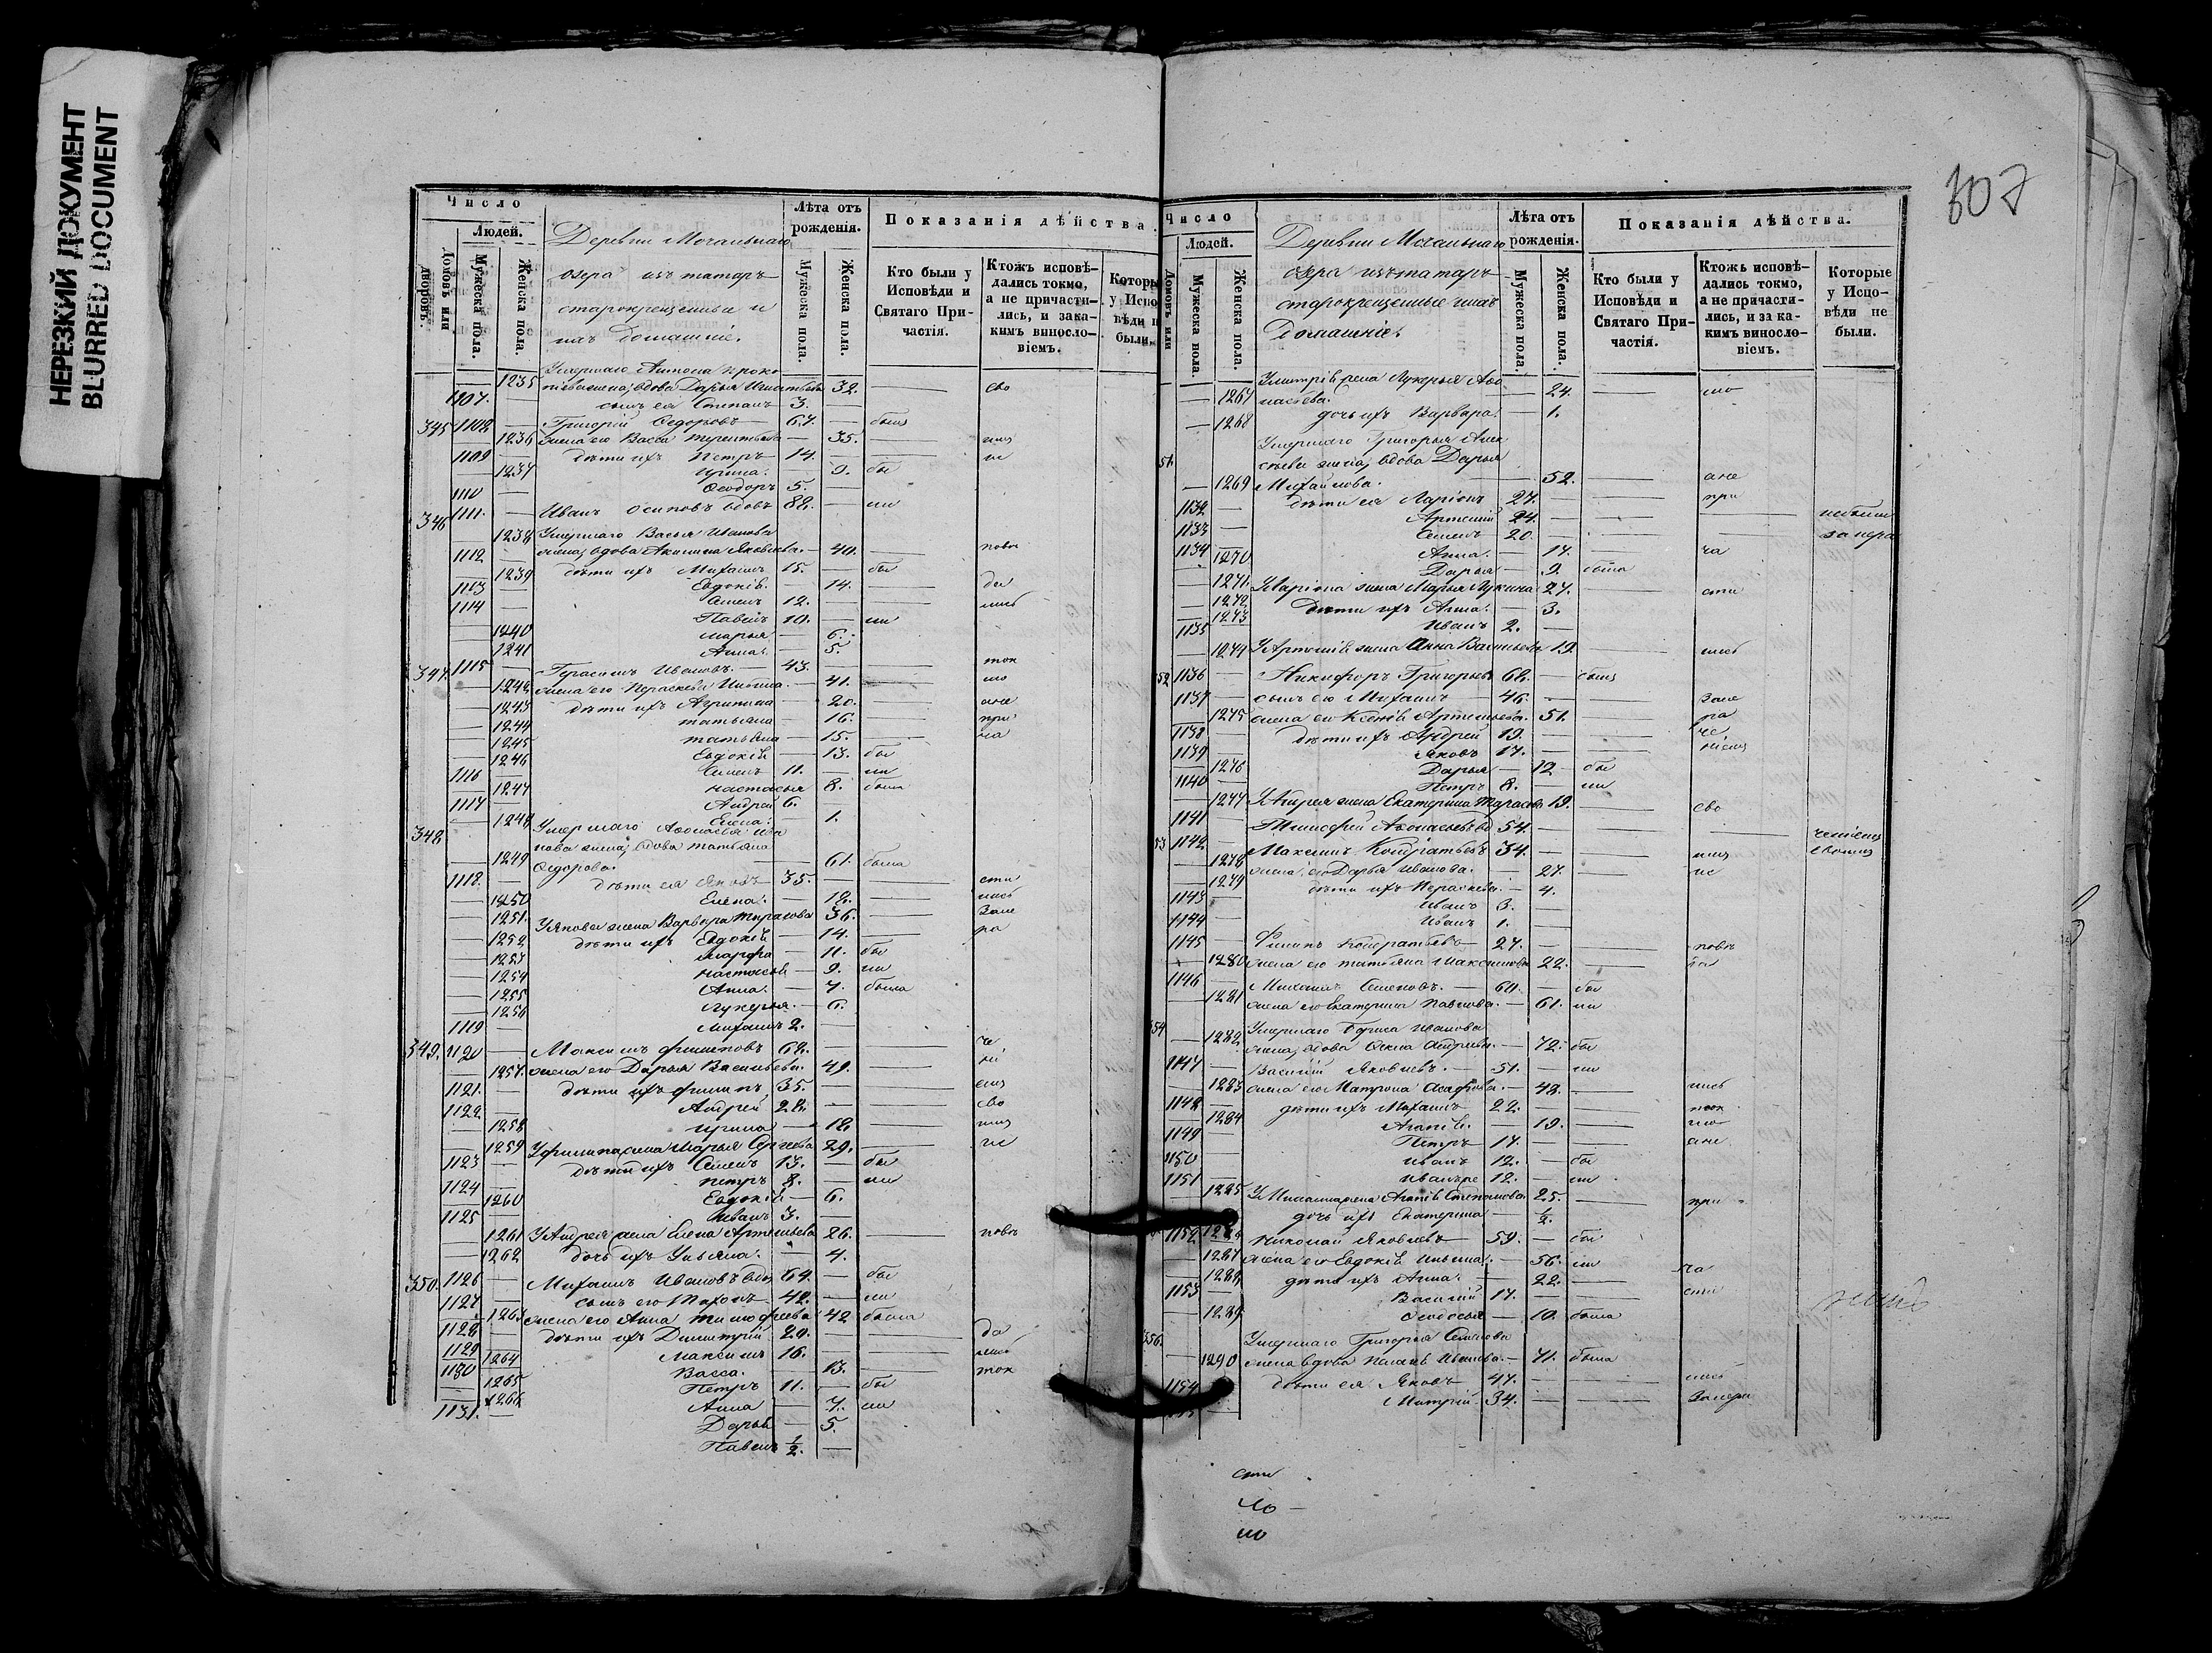 НЕРЕЗКИЙ ДОКУМЕНТ
BLURRED DOCUMENT
307
Число
Людей.
Домовъ или дворовъ.
Мужеска пола.
Женска пола.
Деревни Мочальнаго
озера изъ татаръ
старокрещеные и
ихъ домашніе.
Лѣта отъ рожденія.
Мужеска пола.
Женска пола.
Показанія дѣйства.
Кто были у Исповѣди и Святаго Причастія.
Ктожъ исповѣдались токмо, а не причастились, и за какимъ винословіемъ.
Которы у Испо вѣди н были.
Умершаго Антона Проко
1235 жена, вдова Дарья 32. сво
1107. сынъ ея Степанъ 3.
345 1108 Григорій Ѳедоровъ 67. былъ
1236 жена его Васса Терентьева 35.
1109 дѣти ихъ Петръ 14. не
1237 Ирина. 9. бы
1110 Ѳеодоръ 5.
346 1111. Иванъ Осиповъ вдовъ 88. ли
1238 Умершаго Васья Иванова
1112 жена, вдова Акилина Яковлева. 40. повѣ
1239 дѣти ихъ Михаилъ 15. бы
1113 Евдокія. 14. да
1114 Семенъ 12. лись
Павелъ 10. ли
1240 Марья 6.
1241 Анна. 5.
347 1115 Герасимъ Ивановъ. 43. ток
1242 жена его Параскева Ильина. 41. мо
1243 дѣти ихъ Агрипина 20. ане
1244 Татьяна 16. при
1245 Татьяна 15. ча
1246 Евдокія 13. бы
1116 Семенъ 11. ли
1247 Настасья 8. была
1117 Андрей 6.
1248 Елена. 1.
348 Умершаго Аѳонасья Ива
1249 нова жена, вдова Татьяна
Ѳедорова. 61. была
1118. дѣти ея Яковъ 35. сти
1250 Елена. 18. лись
1251. У Якова жена Варвара Тарасова 36. Зане
1252 дѣти ихъ Евдокія 14. ра
1253 Марфа 11. бы
1254 Настасья 9. ли
1255 Анна. 7. была
1256 Лукерья. 6.
1119 Михаилъ 2.
349. 1120 Максимъ Филиповъ 68. че
1257. жена его Дарья Васильева. 49. ні
1121. дѣти ихъ Филипъ 35. емъ
1122 Андрей 28. сво
1258 Ирина 18. имъ
1259 У Филипа жена Марья Сергѣева 29. ис
1123 дѣти ихъ Семенъ 13. бы
1124 Петръ 8. ли
1260 Евдокія 6.
1125 Иванъ 3.
1261 У Андрея жена Елена Артемьева 26. повѣ
1262 дочь ихъ Ульяна. 4.
350. 1126 Михаилъ Ивановъ вдов 64. бы
1127 сынъ его Тихонъ 42. ли
1263 жена его Анна Тимофеева 42 была
1128 дѣти ихъ Димитрій 20. да
1129 Максимъ 16. лись
1130 1264 Васса. 13. ток
1265 Петръ 11. бы
1266 Анна 7. ли
1131. Дарья 5.
Павелъ 1/2.
Число
Людей.
Домовъ или
Мужеска пола.
Женска пола.
Деревни Мочальнаго
озера изъ татаръ
старокрещеные ихъ
Домашніе.
Лѣта отъ рожденія.
Мужеска пола.
Женска пола.
Показанія дѣйства.
Кто были у Исповѣди и Святаго Причастія.
Ктожъ исповѣдались токмо, а не причастились, и за какимъ винословіемъ.
Которые у Исповѣди не были.
1267 У Дмитрія жена Лукерья Аѳо
насьева. 24. мо
1268 дочь ихъ Варвара. 1.
51. Умершаго Григорья Алек
сѣева жена, вдова Дарья
1269 Михайлова. 52. ане
1132 дѣти ея Ларіонъ 27. при
1133 Артемій 24. небыли
1134 Семенъ 20. за нера
1270 Анна. 17. ча
1271. Дарья 9. была
1272 У Ларіона жена Марья Лукина 27. сти
1273 дѣти ихъ Анна. 3.
1135 Иванъ 2.
1274 У Артемія жена Анна Васильева 19. лись
52 1136 Никифоръ Григорьев 68. былъ
1137 сынъ его Михаилъ 46. Зане
1275 жена его Ксенія Артемьева. 51. ра
1138 дѣти ихъ Андрей 19. че
1139 Яковъ 17. ніемъ
1276 Дарья 12 бы
1140 Петръ 8. ли
1277 У Андрея жена Екатерина Тарасов 19. сво
1141 Тимофей Аѳонасьевъ вд 54. ченіемъ
53 1142 Максимъ Кондратьевъ 34. имъ своимъ
1278 жена его Дарья Иванова. 27. ис
1279 дѣти ихъ Параскева. 4.
1143 Иванъ 3.
1144 Иванъ 1.
1145 Филипъ Кондратьевъ 27. повѣ
1280 жена его Татьяна Максимова 22. да
1146 Михаилъ Семеновъ. 60. бы
1281 жена его Екатерина Павлова. 61. ли
354 Умершаго Бориса Иванова
1282 жена, вдова 72. бы
1147 Василій Яковлевъ. 51. ли
1283 жена его Матрона 48. лись
1148 дѣти ихъ Михаилъ 22. ток
1284 Агапія. 19. мо
1149 Петръ 17. ане
1150 Иванъ 12. бы
1151 Иванъ же 12. ли
1285 У Михаила жена Агапія Степанова 25. при
дочь ихъ Екатерина 1/2.
1152 Николай Яковлевъ 59. бы
1287 жена его Евдокія Ильина. 56. ли
1288 дѣти ихъ Анна. 22. ча
1153 Василій 17. сти
1289 Ѳеодосья 10. была
356. Умершаго Григорья Семенова
1290 жена вдова Иванова. 71. была
1154 дѣти ея Яковъ 47. лись
Митрій 34. Занера
сти